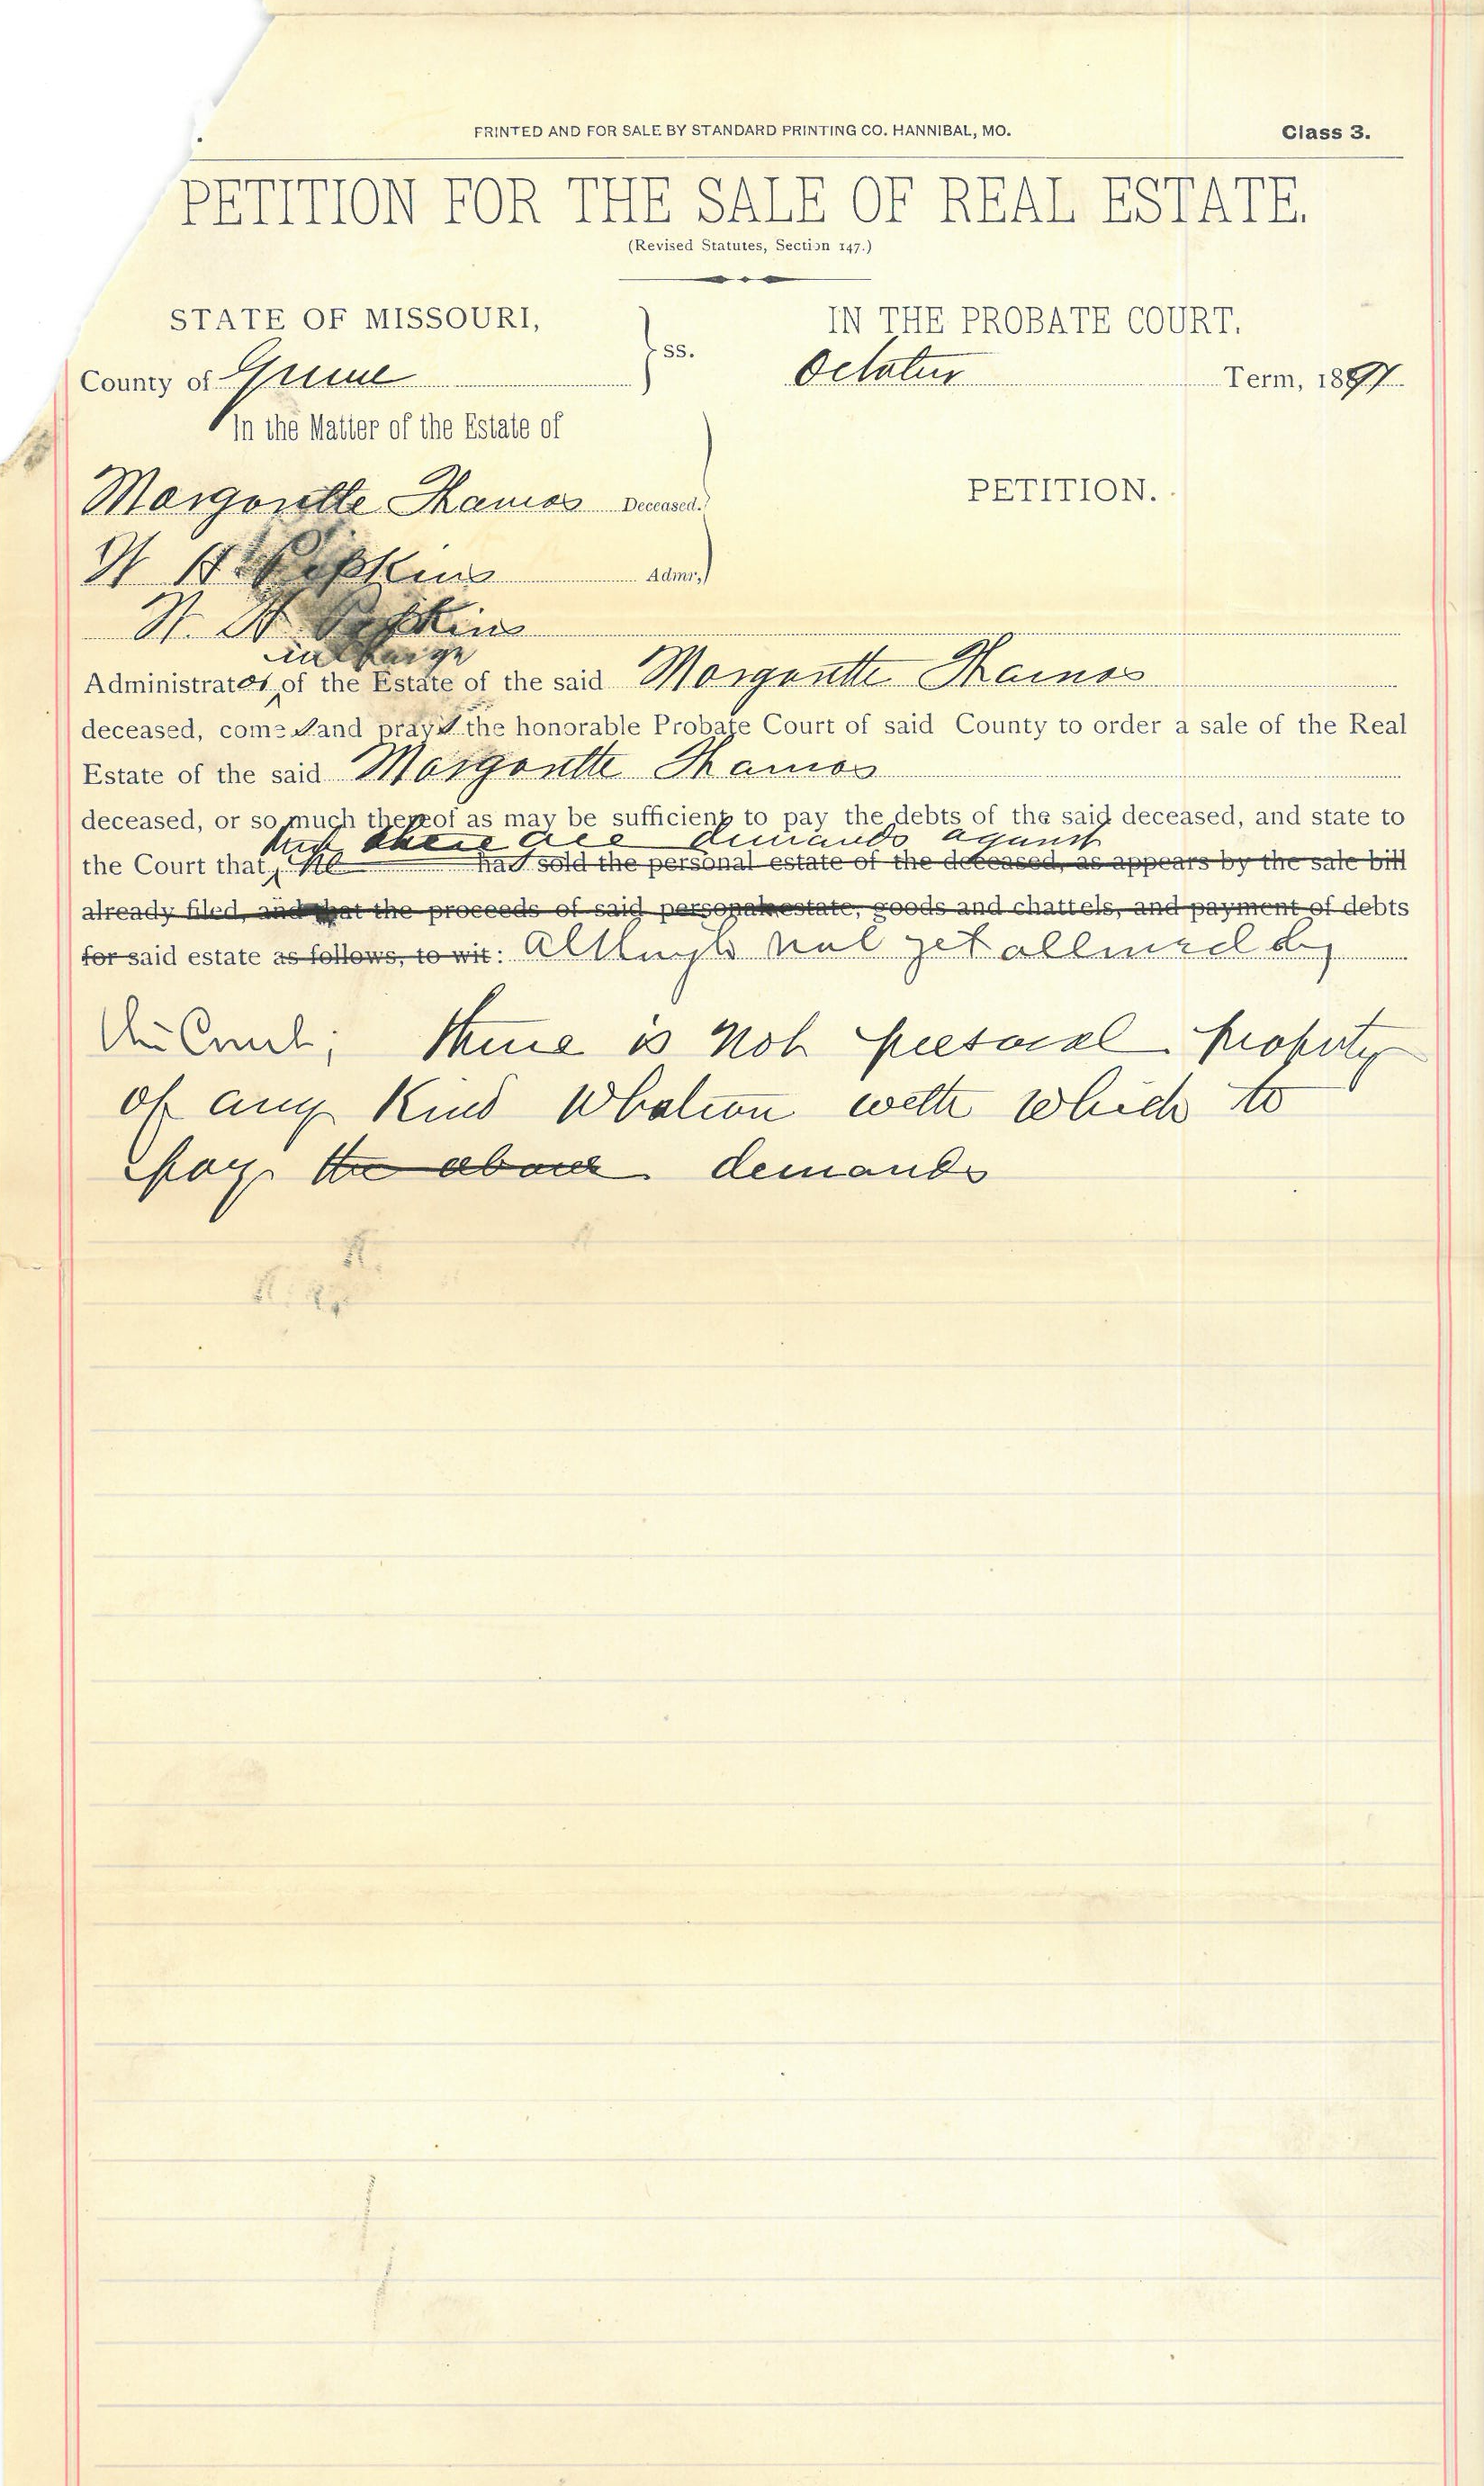 PRINTED AND FOR SALE BY STANDARD PRINTING CO. HANNIBAL, MO. Class 3.
PETITION FOR THE SALE OF REAL ESTATE.
(Revised Statutes, Section 147.)
STATE OF MISSOURI, ss. IN THE PROBATE COURT.
County of Greene October Term, 1897
In the Matter of the Estate of
Deceased. PETITION.
W H Pipkins Admr,
W. H Pipkins
in charge
Administrator of the Estate of the said
deceased, comes and prays the honorable Probate Court of said County to order a sale of the Real
Estate of the said
deceased, or so much thereof as may be sufficient to pay the debts of the said deceased, and state to
there are demands against
the Court that, he has sold the personal estate of the deceased, as appears by the sale bill
already filed, and that the proceeds of said personal estate, goods and chattels, and payment of debts
for said estate as follows, to wit: although not yet allowed by
this Court; there is not personal property
of any Kind with which to
pay the above demands